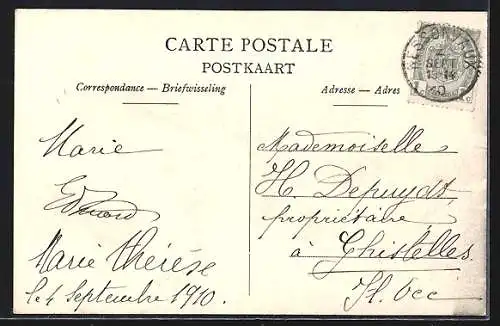 CARTE POSTALE
POSTKAART
Correspondance — Briefwisseling
Adresse — Adres
Marie
Edouard
Marie Thérèse
Le 4 Septembre 1910.
Mademoiselle
H. Depuydt,
propriétaire
à Ghistelles
Fl. occ
SEPT